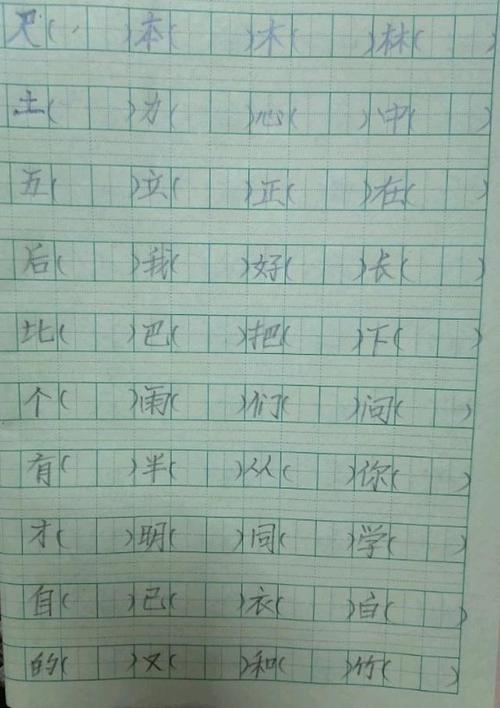 尺( )本( )木( )林( )
土( )力( )心( )中( )
五( )立( )正( )在( )
后( )我( )好( )长( )
比( )巴( )把( )下( )
个( )雨( )们( )问( )
有( )半( )从( )你( )
才( )明( )同( )学( )
自( )己( )衣( )白( )
的( )又( )和( )竹( )